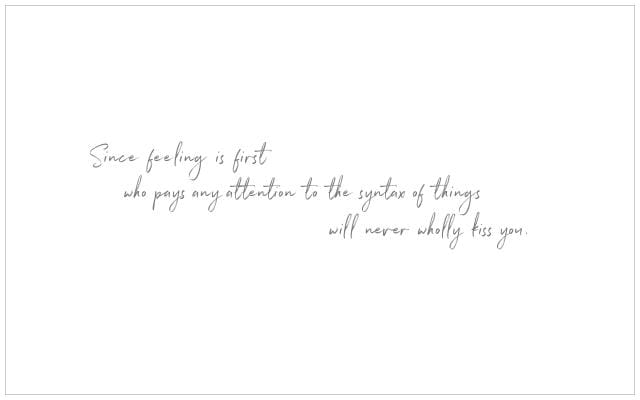 Since feeling is first
who pays any attention to the syntax of things
will never wholly kiss you.